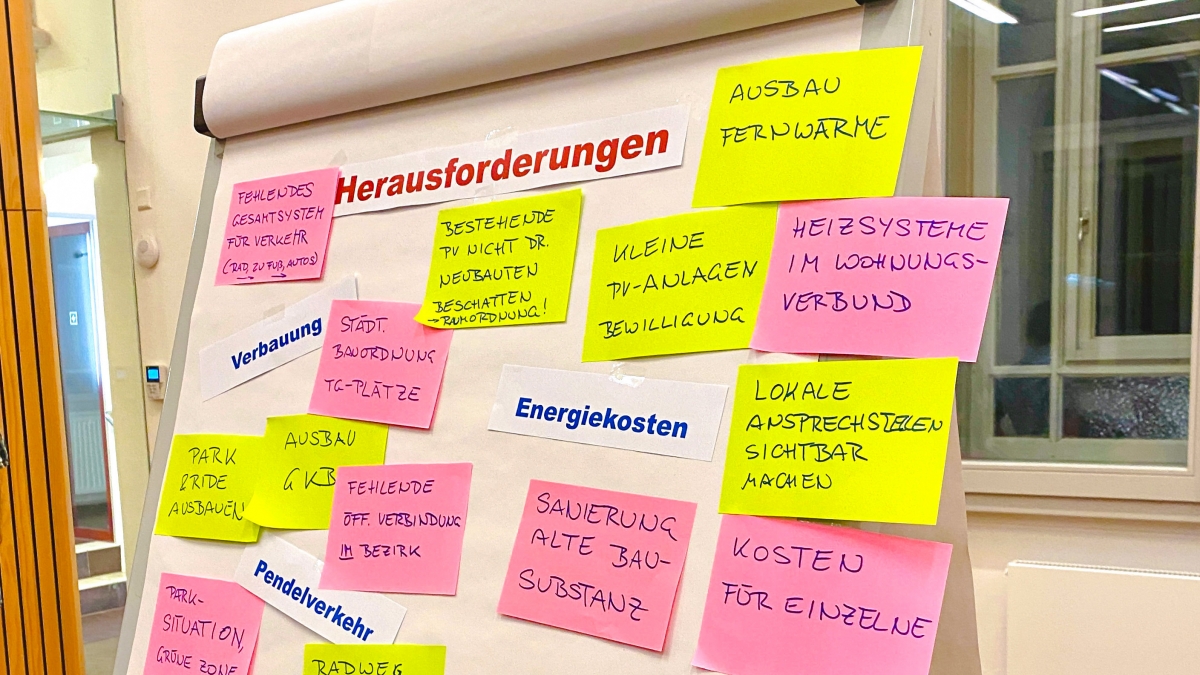 Herausforderungen
AUSBAU
FERNWÄRME
FEHLENDES
GESAMTSYSTEM
FÜR VERKEHR
(RAD, ZU FUß, AUTOS)
BESTEHENDE
PV NICHT DR.
NEUBAUTEN
BESCHATTEN
→ RAUMORDNUNG!
KLEINE
PV-ANLAGEN
BEWILLIGUNG
HEIZSYSTEME
IM WOHNUNGS-
VERBUND
Verbauung
STÄDT.
BAUORDNUNG
TG-PLÄTZE
Energiekosten
LOKALE
ANSPRECHSTELLEN
SICHTBAR
MACHEN
PARK
&RIDE
AUSBAUEN
AUSBAU
GKB
FEHLENDE
ÖFF. VERBINDUNG
IM BEZIRK
SANIERUNG
ALTE BAU-
SUBSTANZ
KOSTEN
FÜR EINZELNE
Pendelverkehr
PARK-
SITUATION,
GRÜNE ZONE
RADWEG